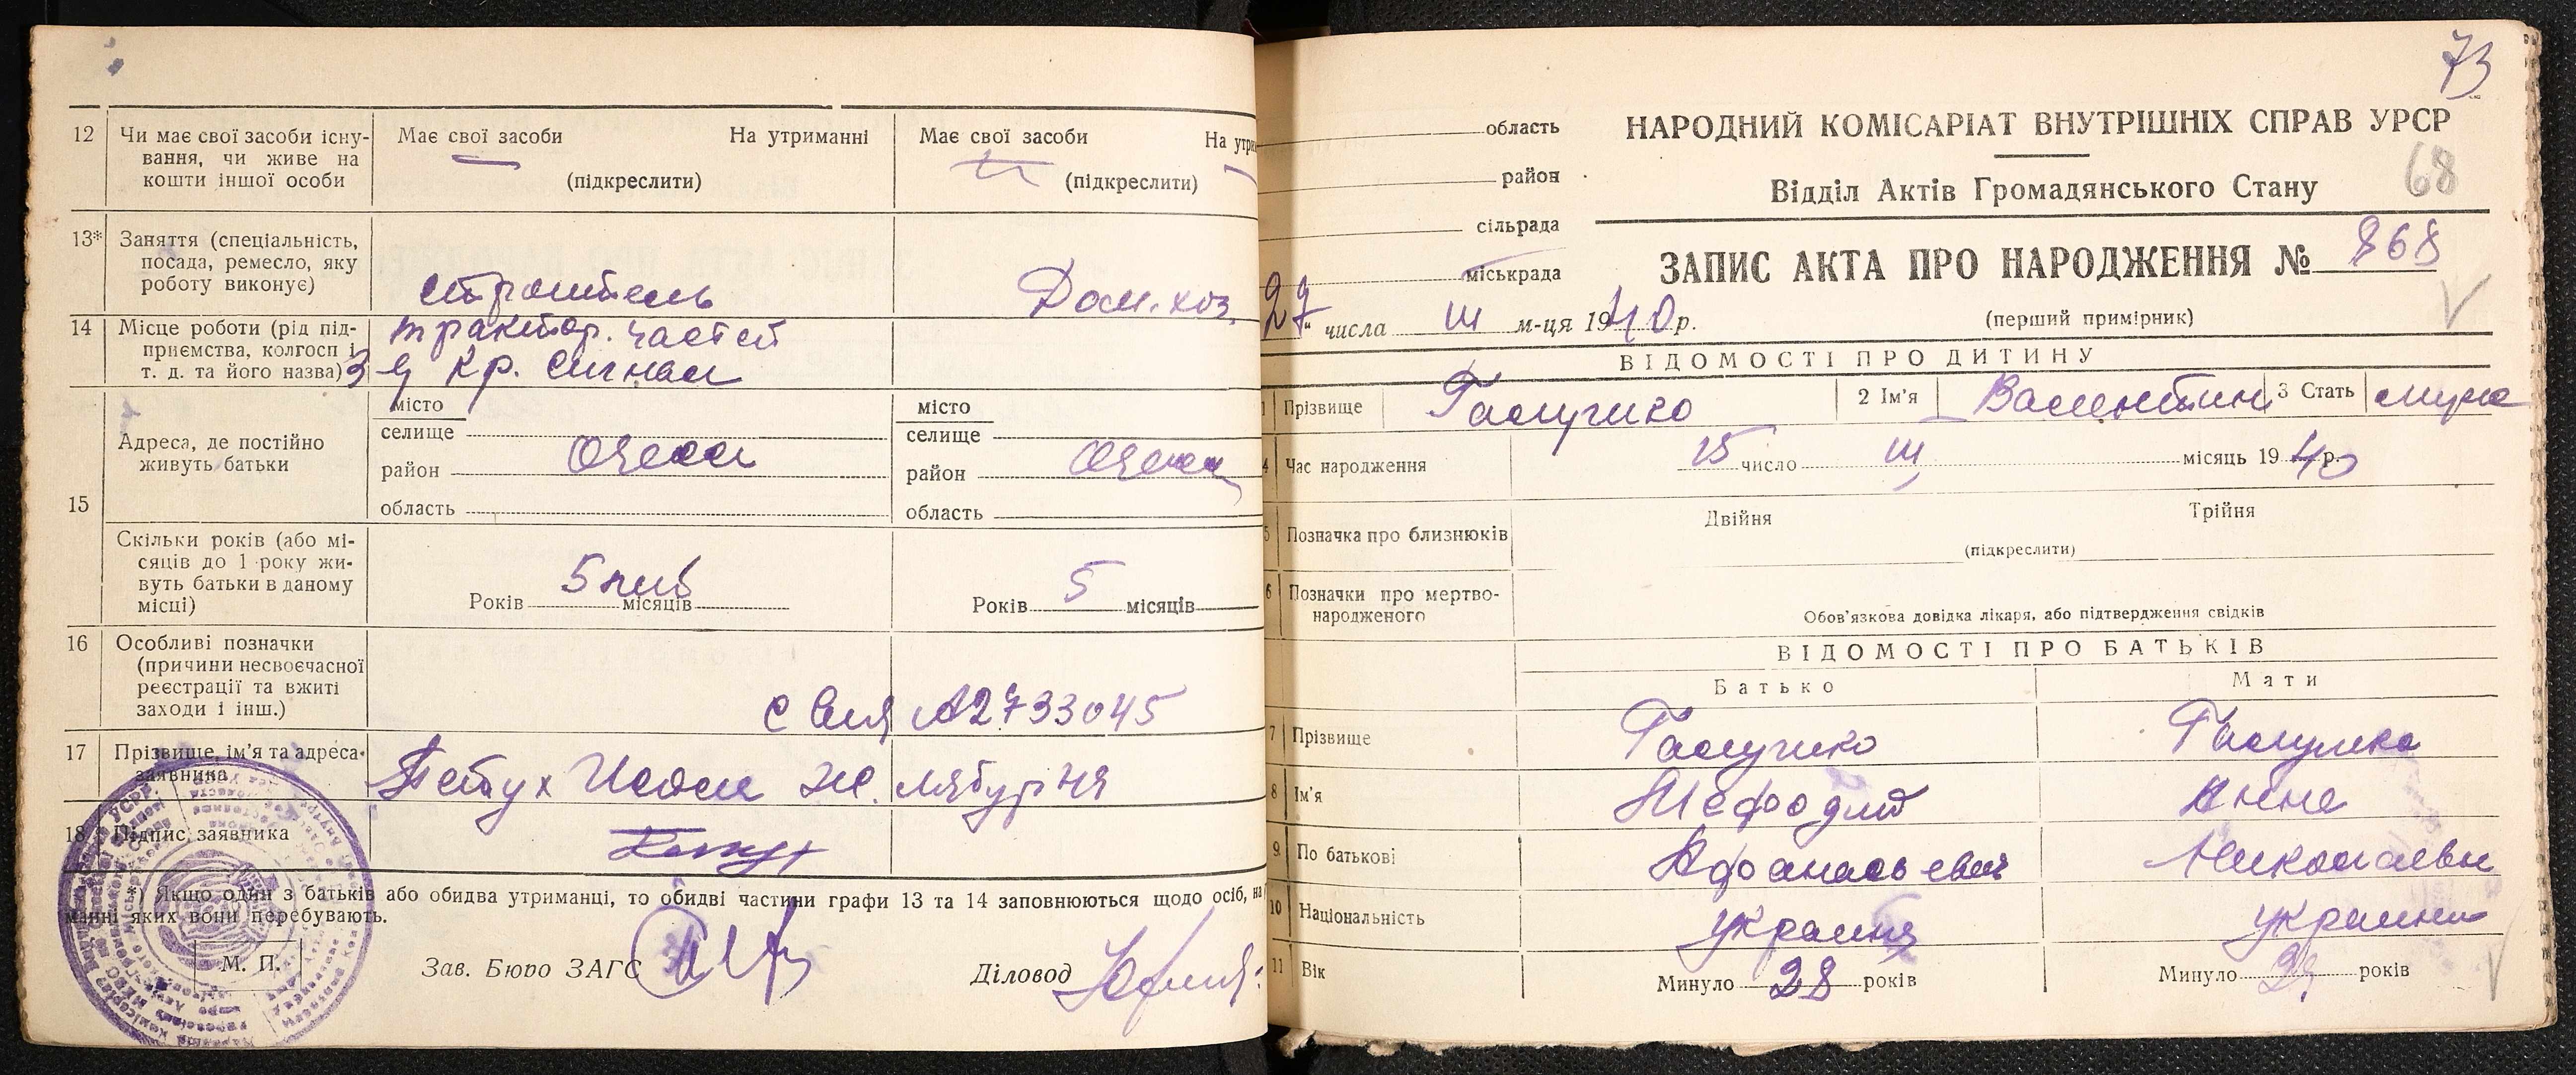 12 Чи має свої засоби існу-
вання, чи живе на
кошти іншої особи
Має свої засоби На утриманні
(підкреслити)
Має свої засоби На утри
(підкреслити)
13* Заняття (спеціальність,
посада, ремесло, яку
роботу виконує)
строитель
Дом. хоз.
14 Місце роботи (рід під-
приємства, колгосп і
т. д. та його назва)
трактор. частей
З-д Кр. Сигнал
15
Адреса, де постійно
живуть батьки
місто
селище
район
область
Одесса
місто
селище
район
область
Одесса
Скільки років (або мі-
сяців до 1 року жи-
вуть батьки в даному
місці)
Років 5 місяців
Років 5 місяців
16 Особливі позначки
(причини несвоєчасної
реєстрації та вжиті
заходи і інш.)
А2733045
17 Прізвище, ім'я та адреса
заявника
Петух
18 Підпис заявника
*) Якщо один з батьків або обидва утриманці, то обидві частини графи 13 та 14 заповнюються щодо осіб, на
манні яких вони перебувають.
М. П.
Зав. Бюро ЗАГС
Діловод
73
область
район
сільрада
міськрада
27 числа III м-ця 1940р.
НАРОДНИЙ КОМІСАРІАТ ВНУТРІШНІХ СПРАВ УРСР
Відділ Актів Громадянського Стану
68
ЗАПИС АКТА ПРО НАРОДЖЕННЯ № 868
(перший примірник)
ВІДОМОСТІ ПРО ДИТИНУ
1 Прізвище Галушко 2 Ім'я Валентин 3 Стать муж
4 Час народження 15 число III місяць 1940р.
5 Позначка про близнюків Двійня Трійня
(підкреслити)
6 Позначки про мертво-
народженого
Обов'язкова довідка лікаря, або підтвердження свідків
ВІДОМОСТІ ПРО БАТЬКІВ
Батько Мати
7 Прізвище Галушко Галушко
8 Ім'я Мефодий Анна
9 По батькові Афанасьевич Николаевн
10 Національність украин украин
11 Вік Минуло 28 років Минуло років